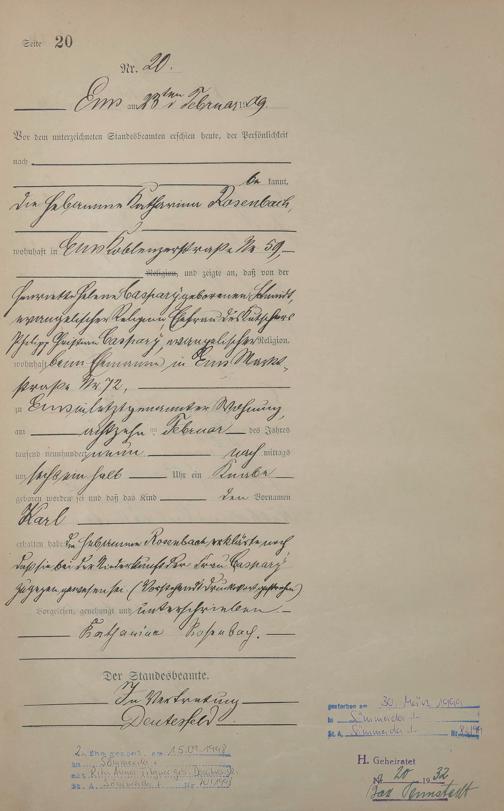 Seite 20
Nr. 20.
Ems am 23ten Februar 1909.
Vor dem unterzeichneten Standesbeamten erschien heute, der Persönlichkeit
nach
be kannt,
die Hebamme Katharina Rosenbach,
wohnhaft in Ems Koblenzerstraße Nr 59,
Religion, und zeigte an, daß von der
Henriette Helene Caspary geborenen Schmidt,
evangelischer Religion Ehefrau des Kutschers
Philipp Christian Caspary evangelischer Religion,
wohnhaft beim Ehemann, in Ems Markt-
straße Nr 72,
zu Ems in letztgenannter Wohnung
am achtzehn Februar des Jahres
tausend neunhundert neun nach mittags
um sechs ein halb Uhr ein Knabe
geboren worden sei und daß das Kind den Vornamen
Karl
erhalten habe. Die Hebamme Rosenbach erklärte noch
daß sie bei der Niederkunft der Frau Caspary
zugegen gewesen sei (Vorstehend Druckwort gestrichen)
Vorgelesen, genehmigt und unterschrieben
Katharina Rosenbach.
Der Standesbeamte.
In Vertretung
gestorben am 30. März 1999
in Sömmerda
St. A. Sömmerda Nr.
H. Geheiratet
Nr 20 1932
Bad Tennstedt
2. Ehe gesch. am
in Sömmerda
St. A. Sömmerda Nr